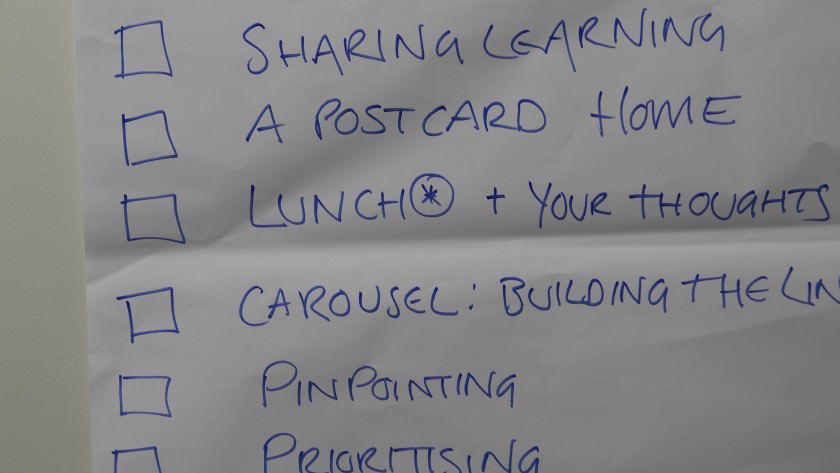 SHARING LEARNING
A POSTCARD HOME
LUNCH* + YOUR THOUGHTS
CAROUSEL: BUILDING THE
PINPOINTING
PRIORITISING